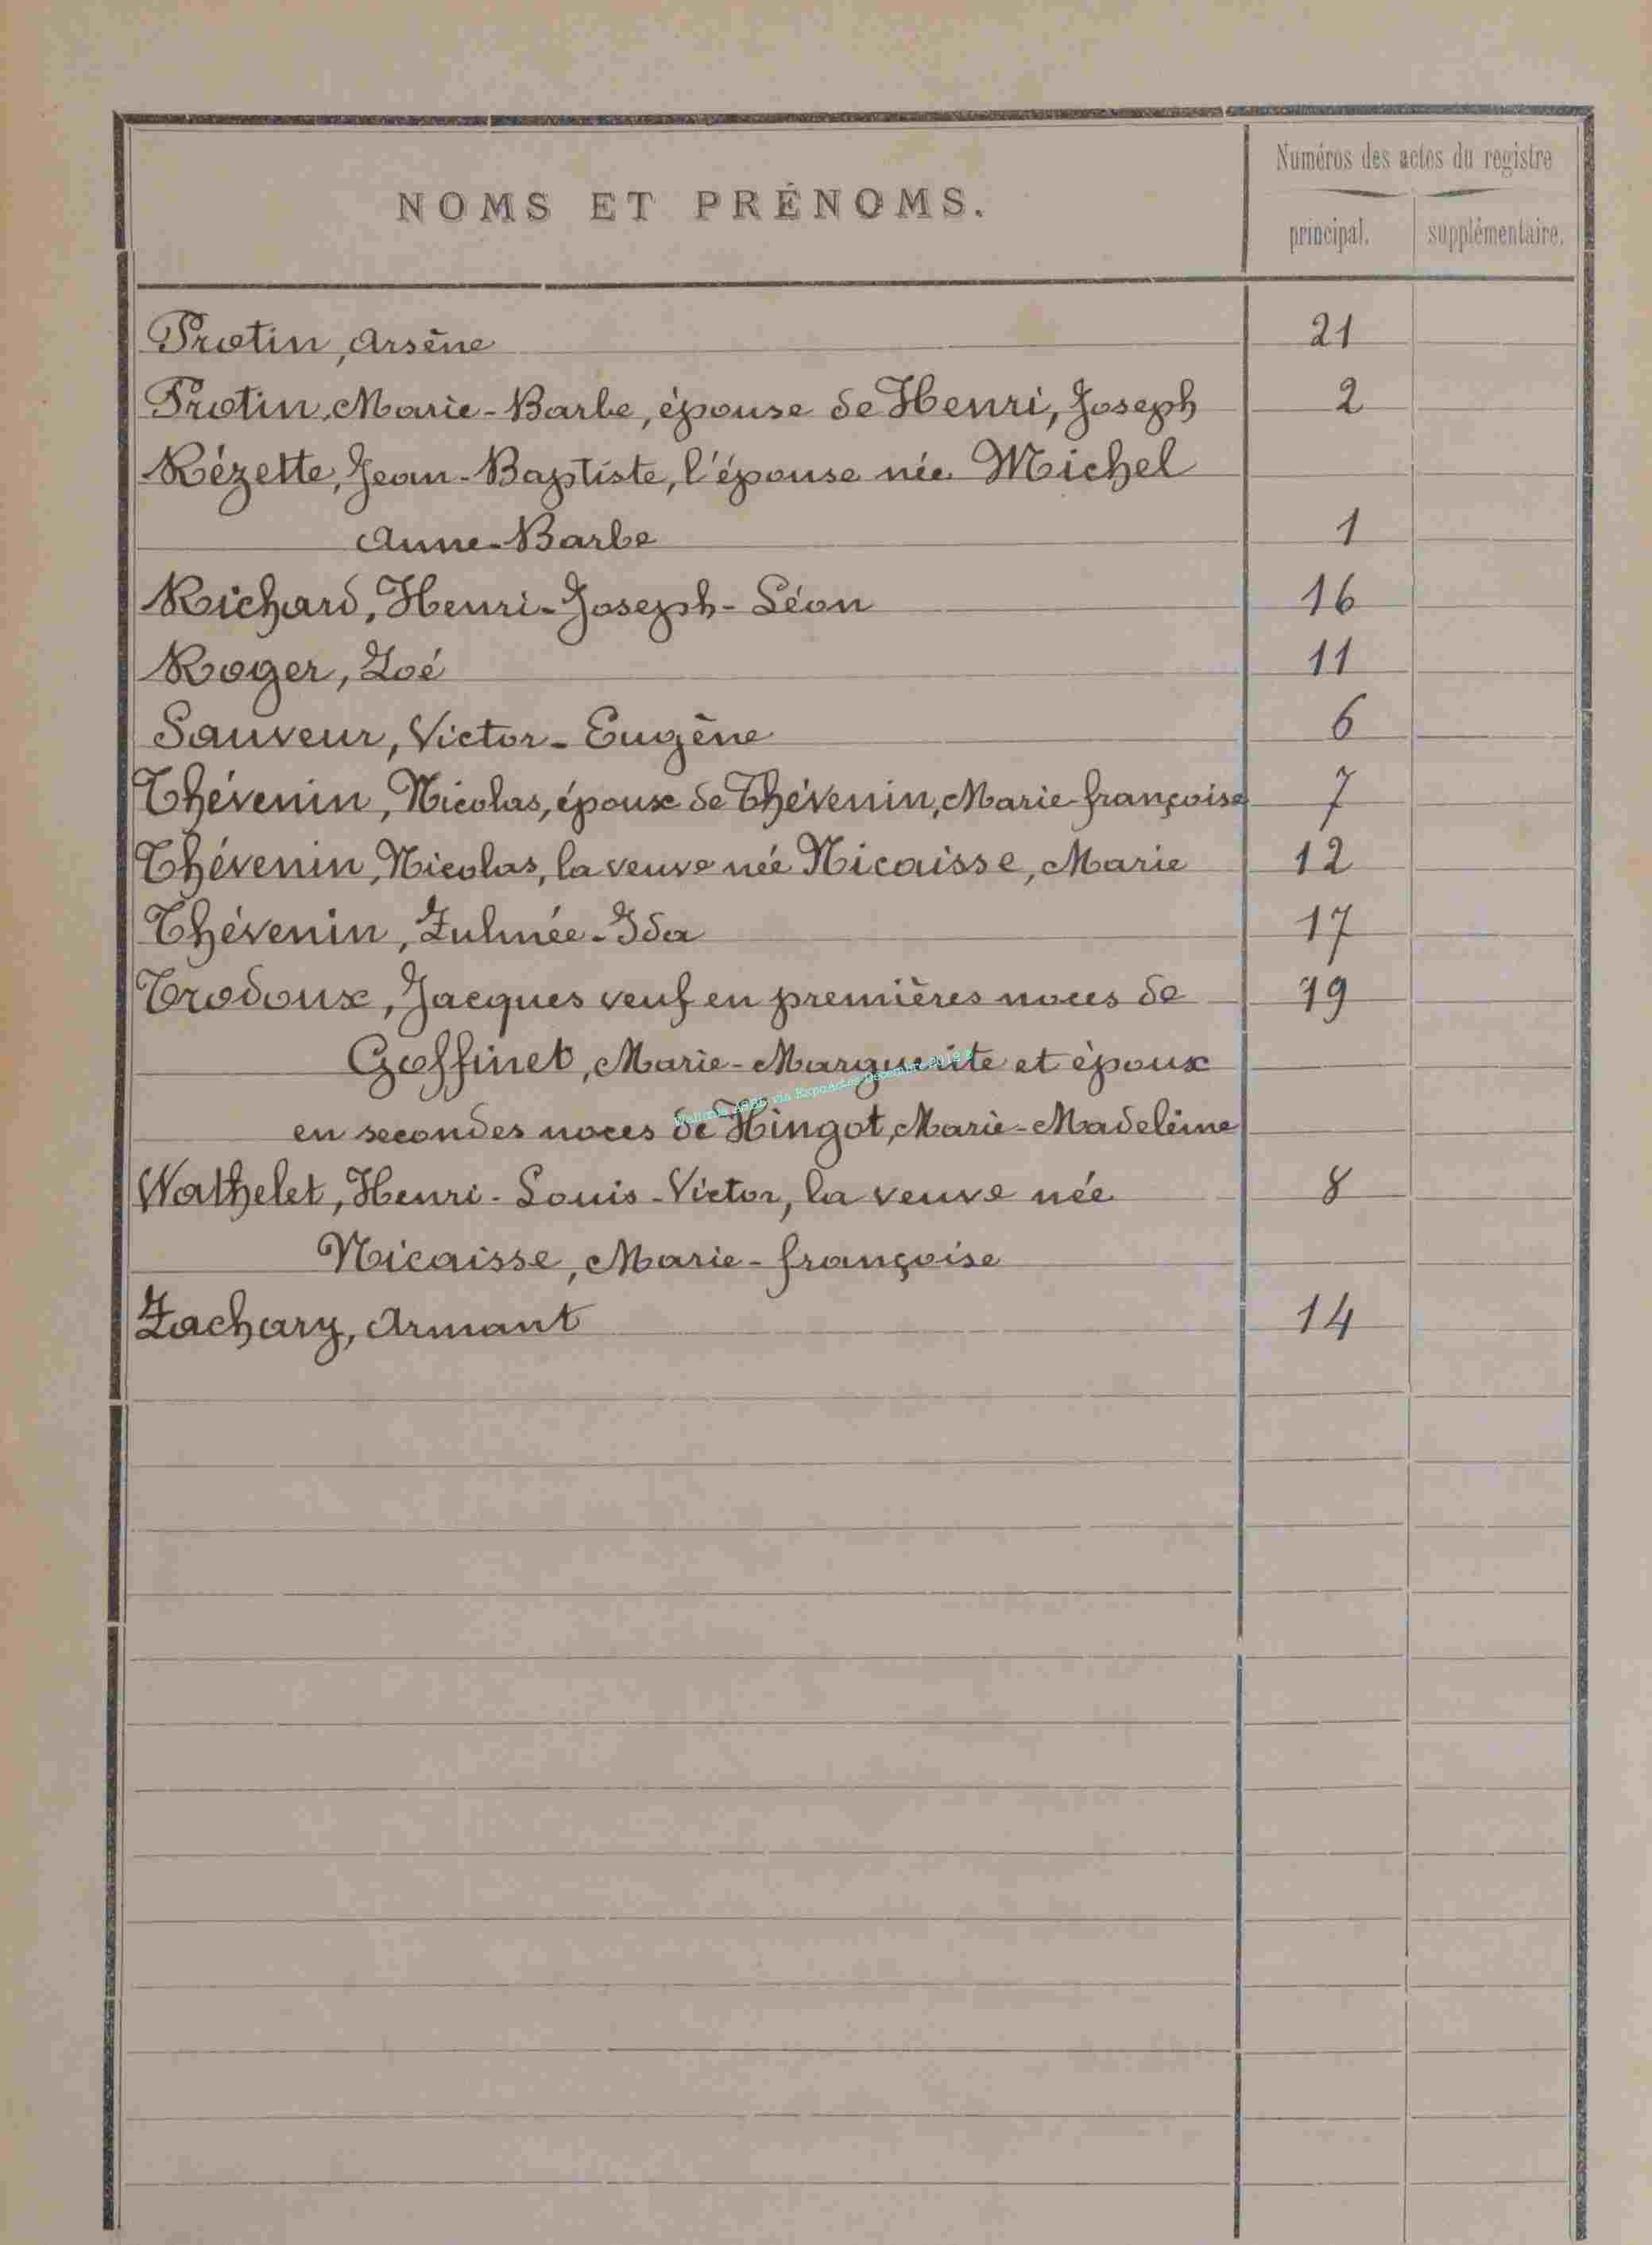 NOMS ET PRÉNOMS.
Numéros des actes du registre
principal. supplémentaire.
Protin, Arsène 21
Protin, Marie-Barbe, épouse de Henri, Joseph 2
Rézette, Jean-Baptiste, l'épouse née Michel
Anne-Barbe 1
Richard, Henri-Joseph-Léon 16
Roger, Zoé 11
Sauveur, Victor-Eugène 6
Thévenin, Nicolas, époux de Thévenin, Marie-françoise 7
Thévenin, Nicolas, la veuve née Nicaisse, Marie 12
Thévenin, Zulmée-Ida 17
Trodoux, Jacques veuf en premières noces de 19
Goffinet, Marie-Marguerite et époux
en secondes noces de Hingot, Marie-Madeleine
Wathelet, Henri-Louis-Victor, la veuve née 8
Nicaisse, Marie-françoise
Zachary, Armant 14